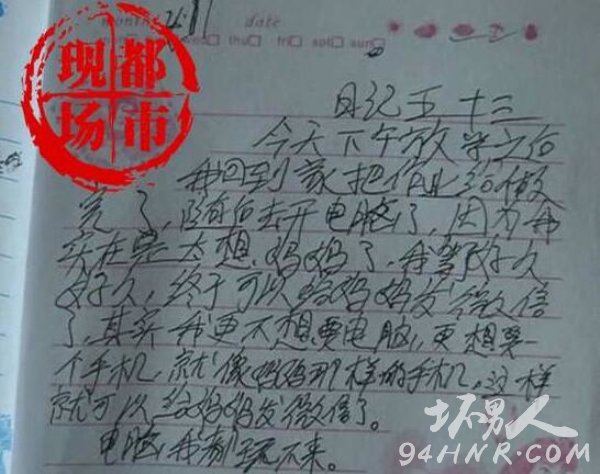 month date
thu fri sat sun
现都
场市
日记五十三
今天下午放学之后
我回到家把作业给做
完了,随后去开电脑了,因为我
实在是太想妈妈了,我等了好久
好久,终于可以给妈妈发微信
了,其实我更不想要电脑,更想买一
个手机,就像妈妈那样的手机,这样
就可以给妈妈发微信了。
电脑我都玩不来。
坏男人
94HNR.COM